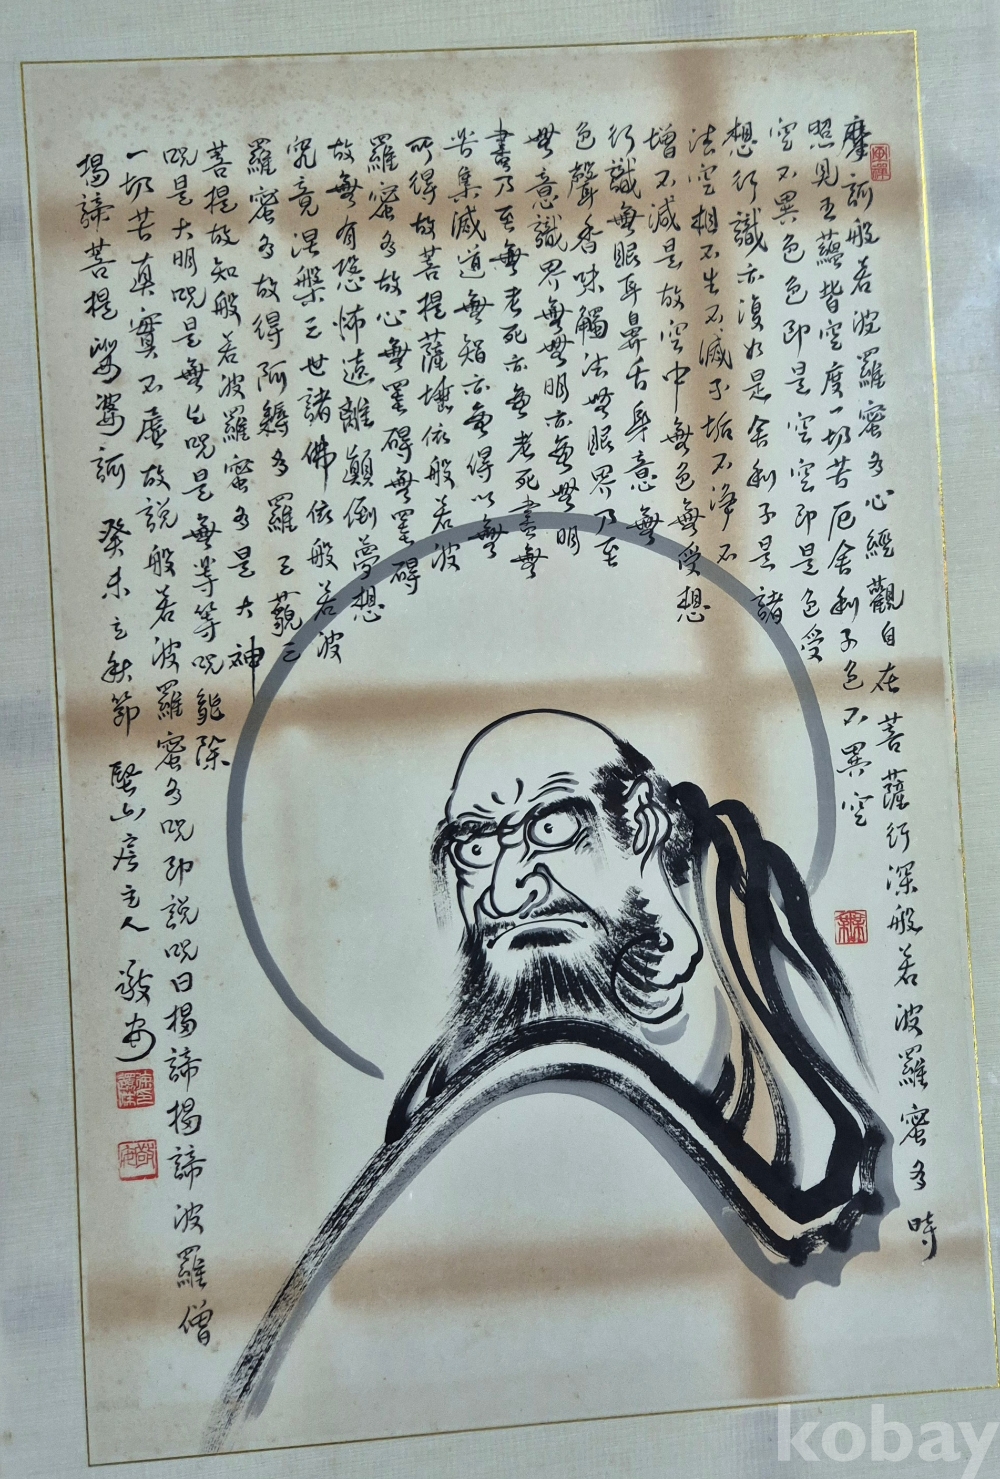 摩訶般若波羅蜜多心經觀自在菩薩行深般若波羅蜜多時
照見五蘊皆空度一切苦厄舍利子色不異空
空不異色色即是空空即是色受
想行識亦復如是舍利子是諸
法空相不生不滅不垢不淨不
增不減是故空中無色無受想
行識無眼耳鼻舌身意無
色聲香味觸法無眼界乃至
無意識界無無明亦無無明
盡乃至無老死亦無老死盡無
苦集滅道無智亦無得以無
所得故菩提薩埵依般若波
羅蜜多故心無罣碍無罣碍
故無有恐怖遠離顛倒夢想
究竟涅槃三世諸佛依般若波
羅蜜多故得阿耨多羅三藐三
菩提故知般若波羅蜜多是大神
呪是大明呪是無上呪是無等等呪能除
一切苦真實不虛故說般若波羅蜜多呪即說呪曰揭諦揭諦波羅僧
揭諦菩提娑婆訶 癸未之秋節 山房主人 敬安
kobay